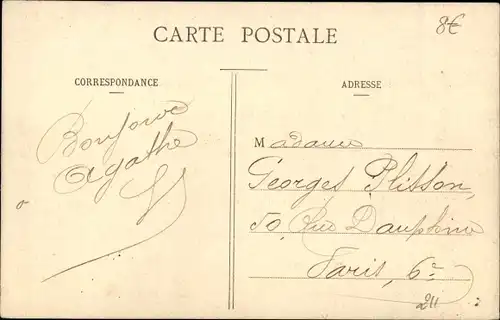 CARTE POSTALE
8€
CORRESPONDANCE
ADRESSE
Bonjour
Agathe
Madame
Georges Plisson,
50, Rue Dauphine
Paris, 6e